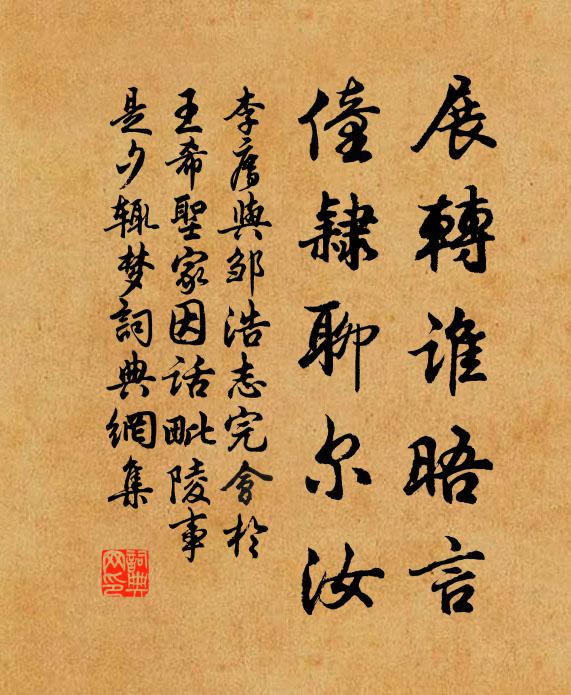 展轉谁晤言
僮隸聊尔汝
李廌與邹浩志完會於
王希聖家因话毗陵事
是夕辄梦詞典網集
詞典
网印